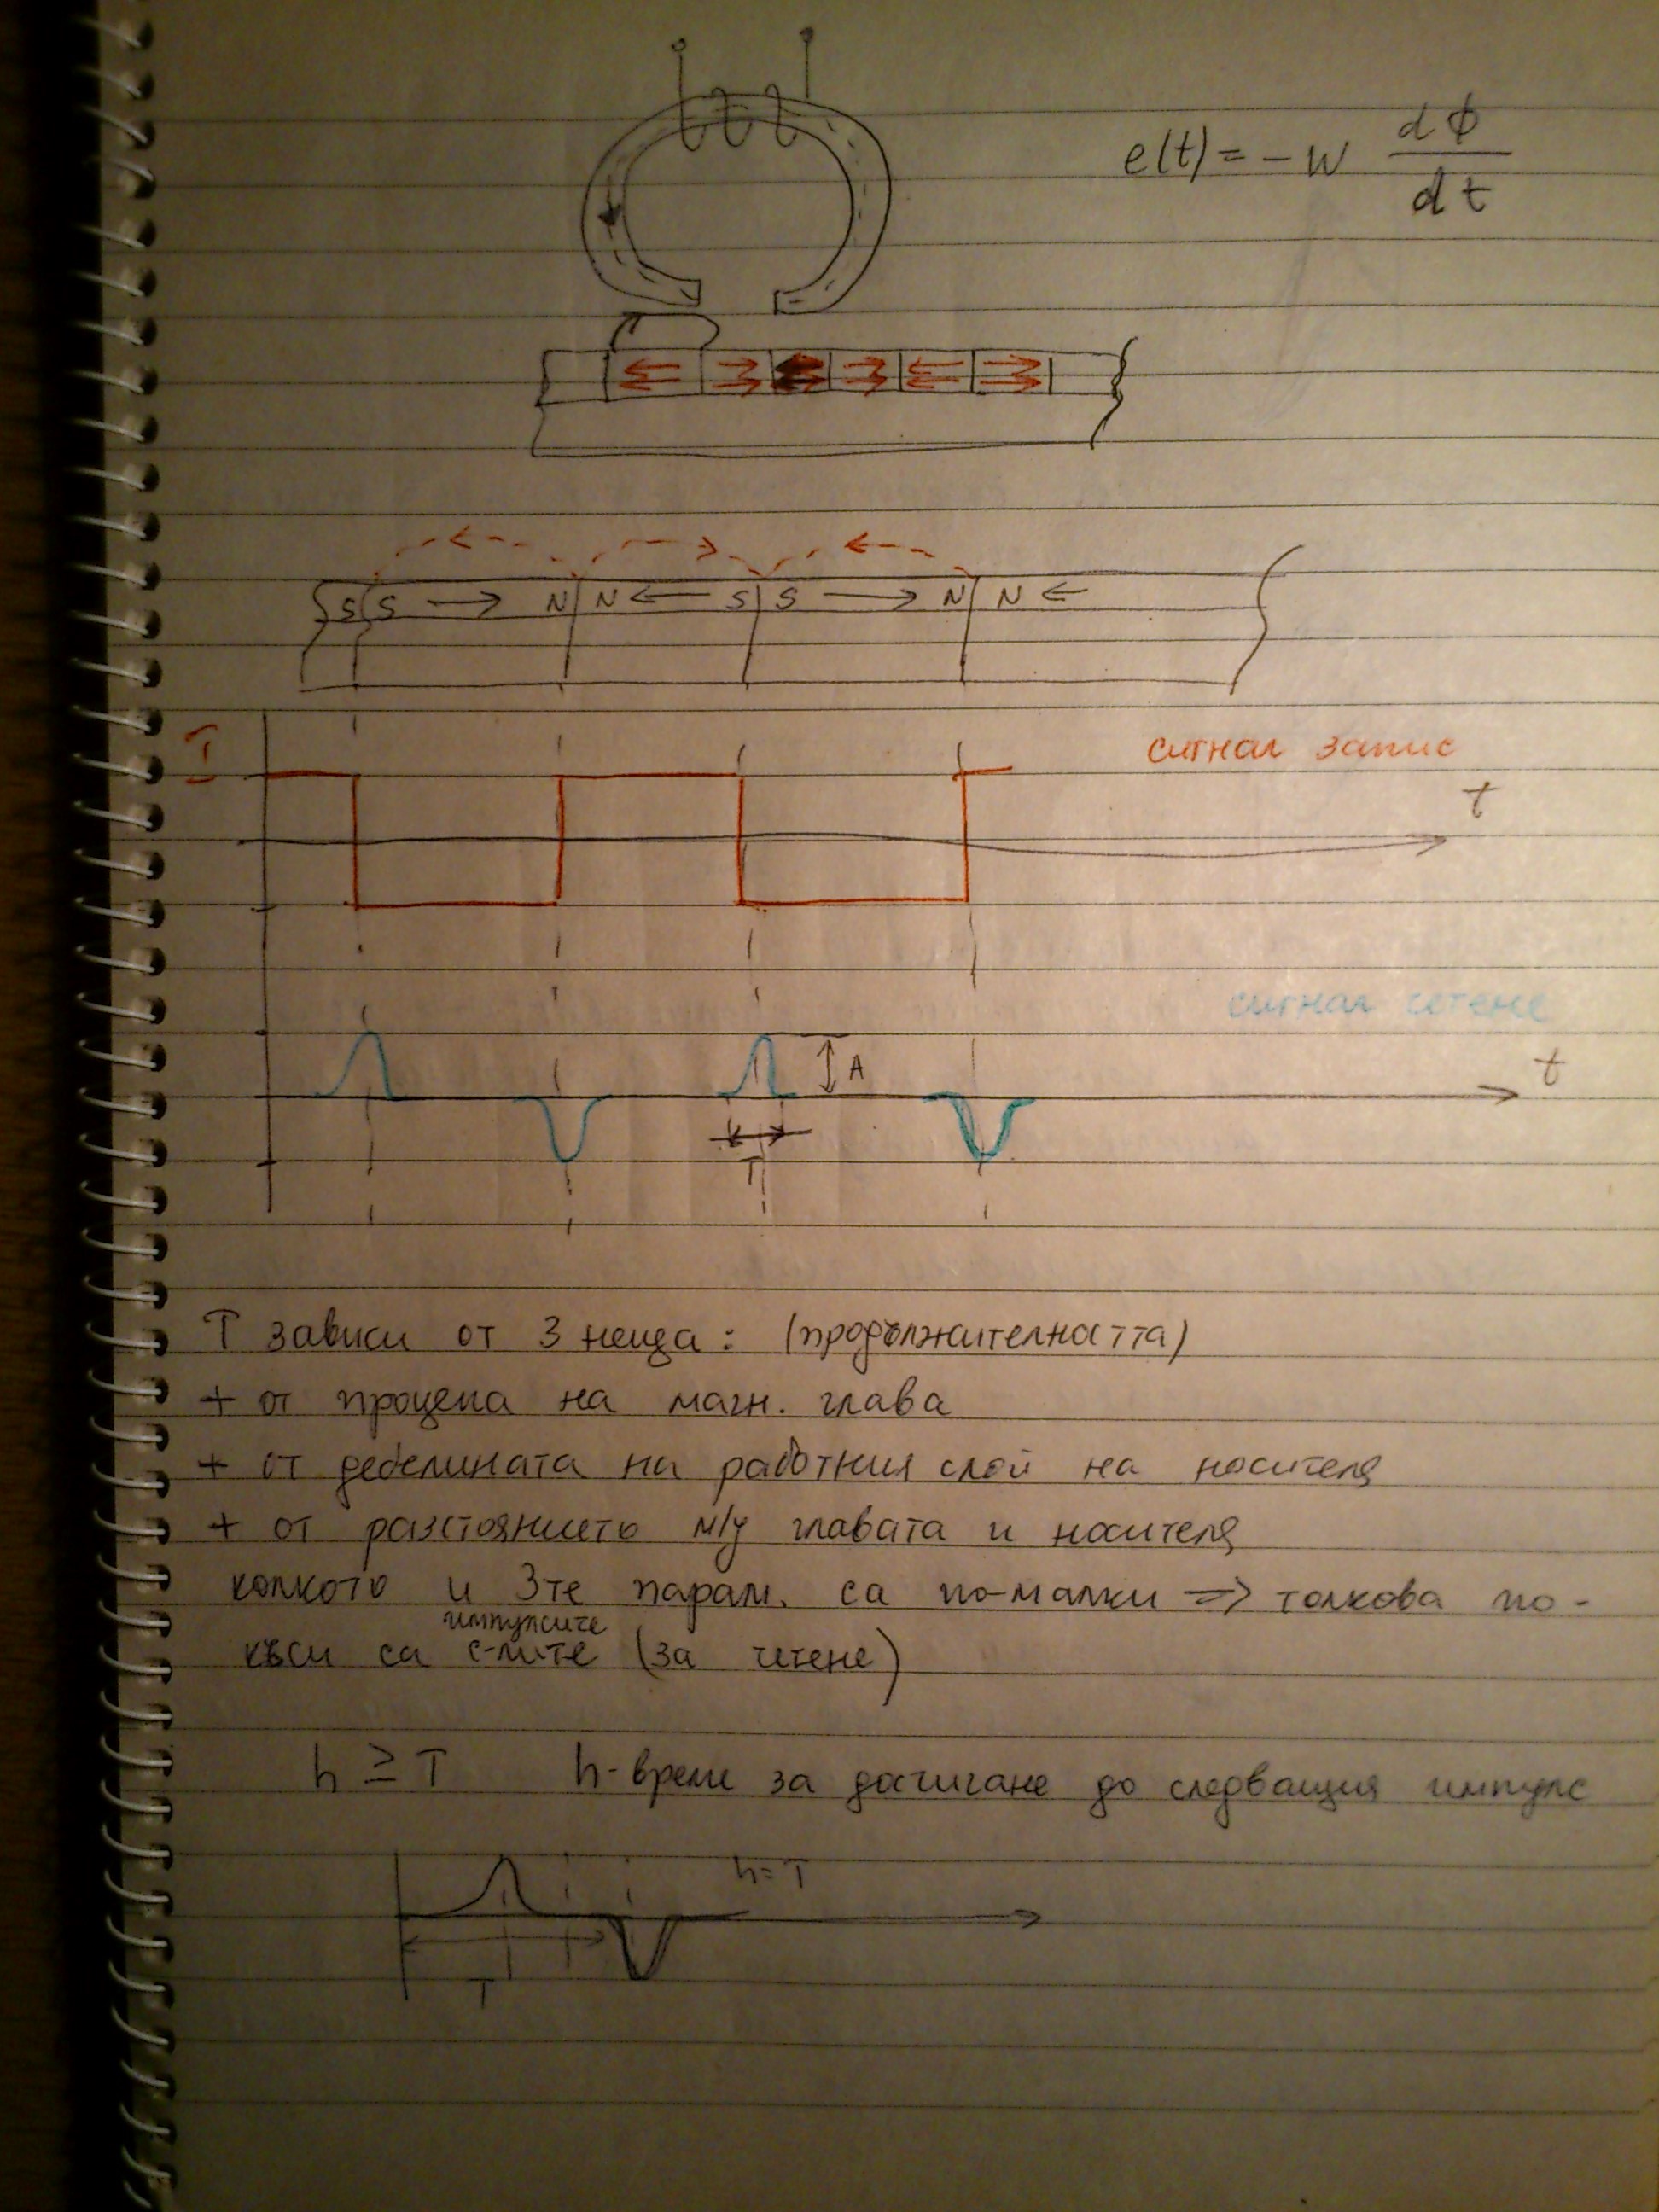 e(t) = - W dΦ/dt
S S → N N ← S S → N N ←
I
сигнал запис
t
сигнал четене
A
t
T
T зависи от 3 неща: (продължителността)
+ от процепа на магн. глава
+ от дебелината на работния слой на носителя
+ от разстоянието м/у главата и носителя
колкото и 3те парам. са по-малки => толкова по-
импулсите
къси са с-лите (за четене)
h ≥ T h- време за достигане до следващия импулс
h = T
T